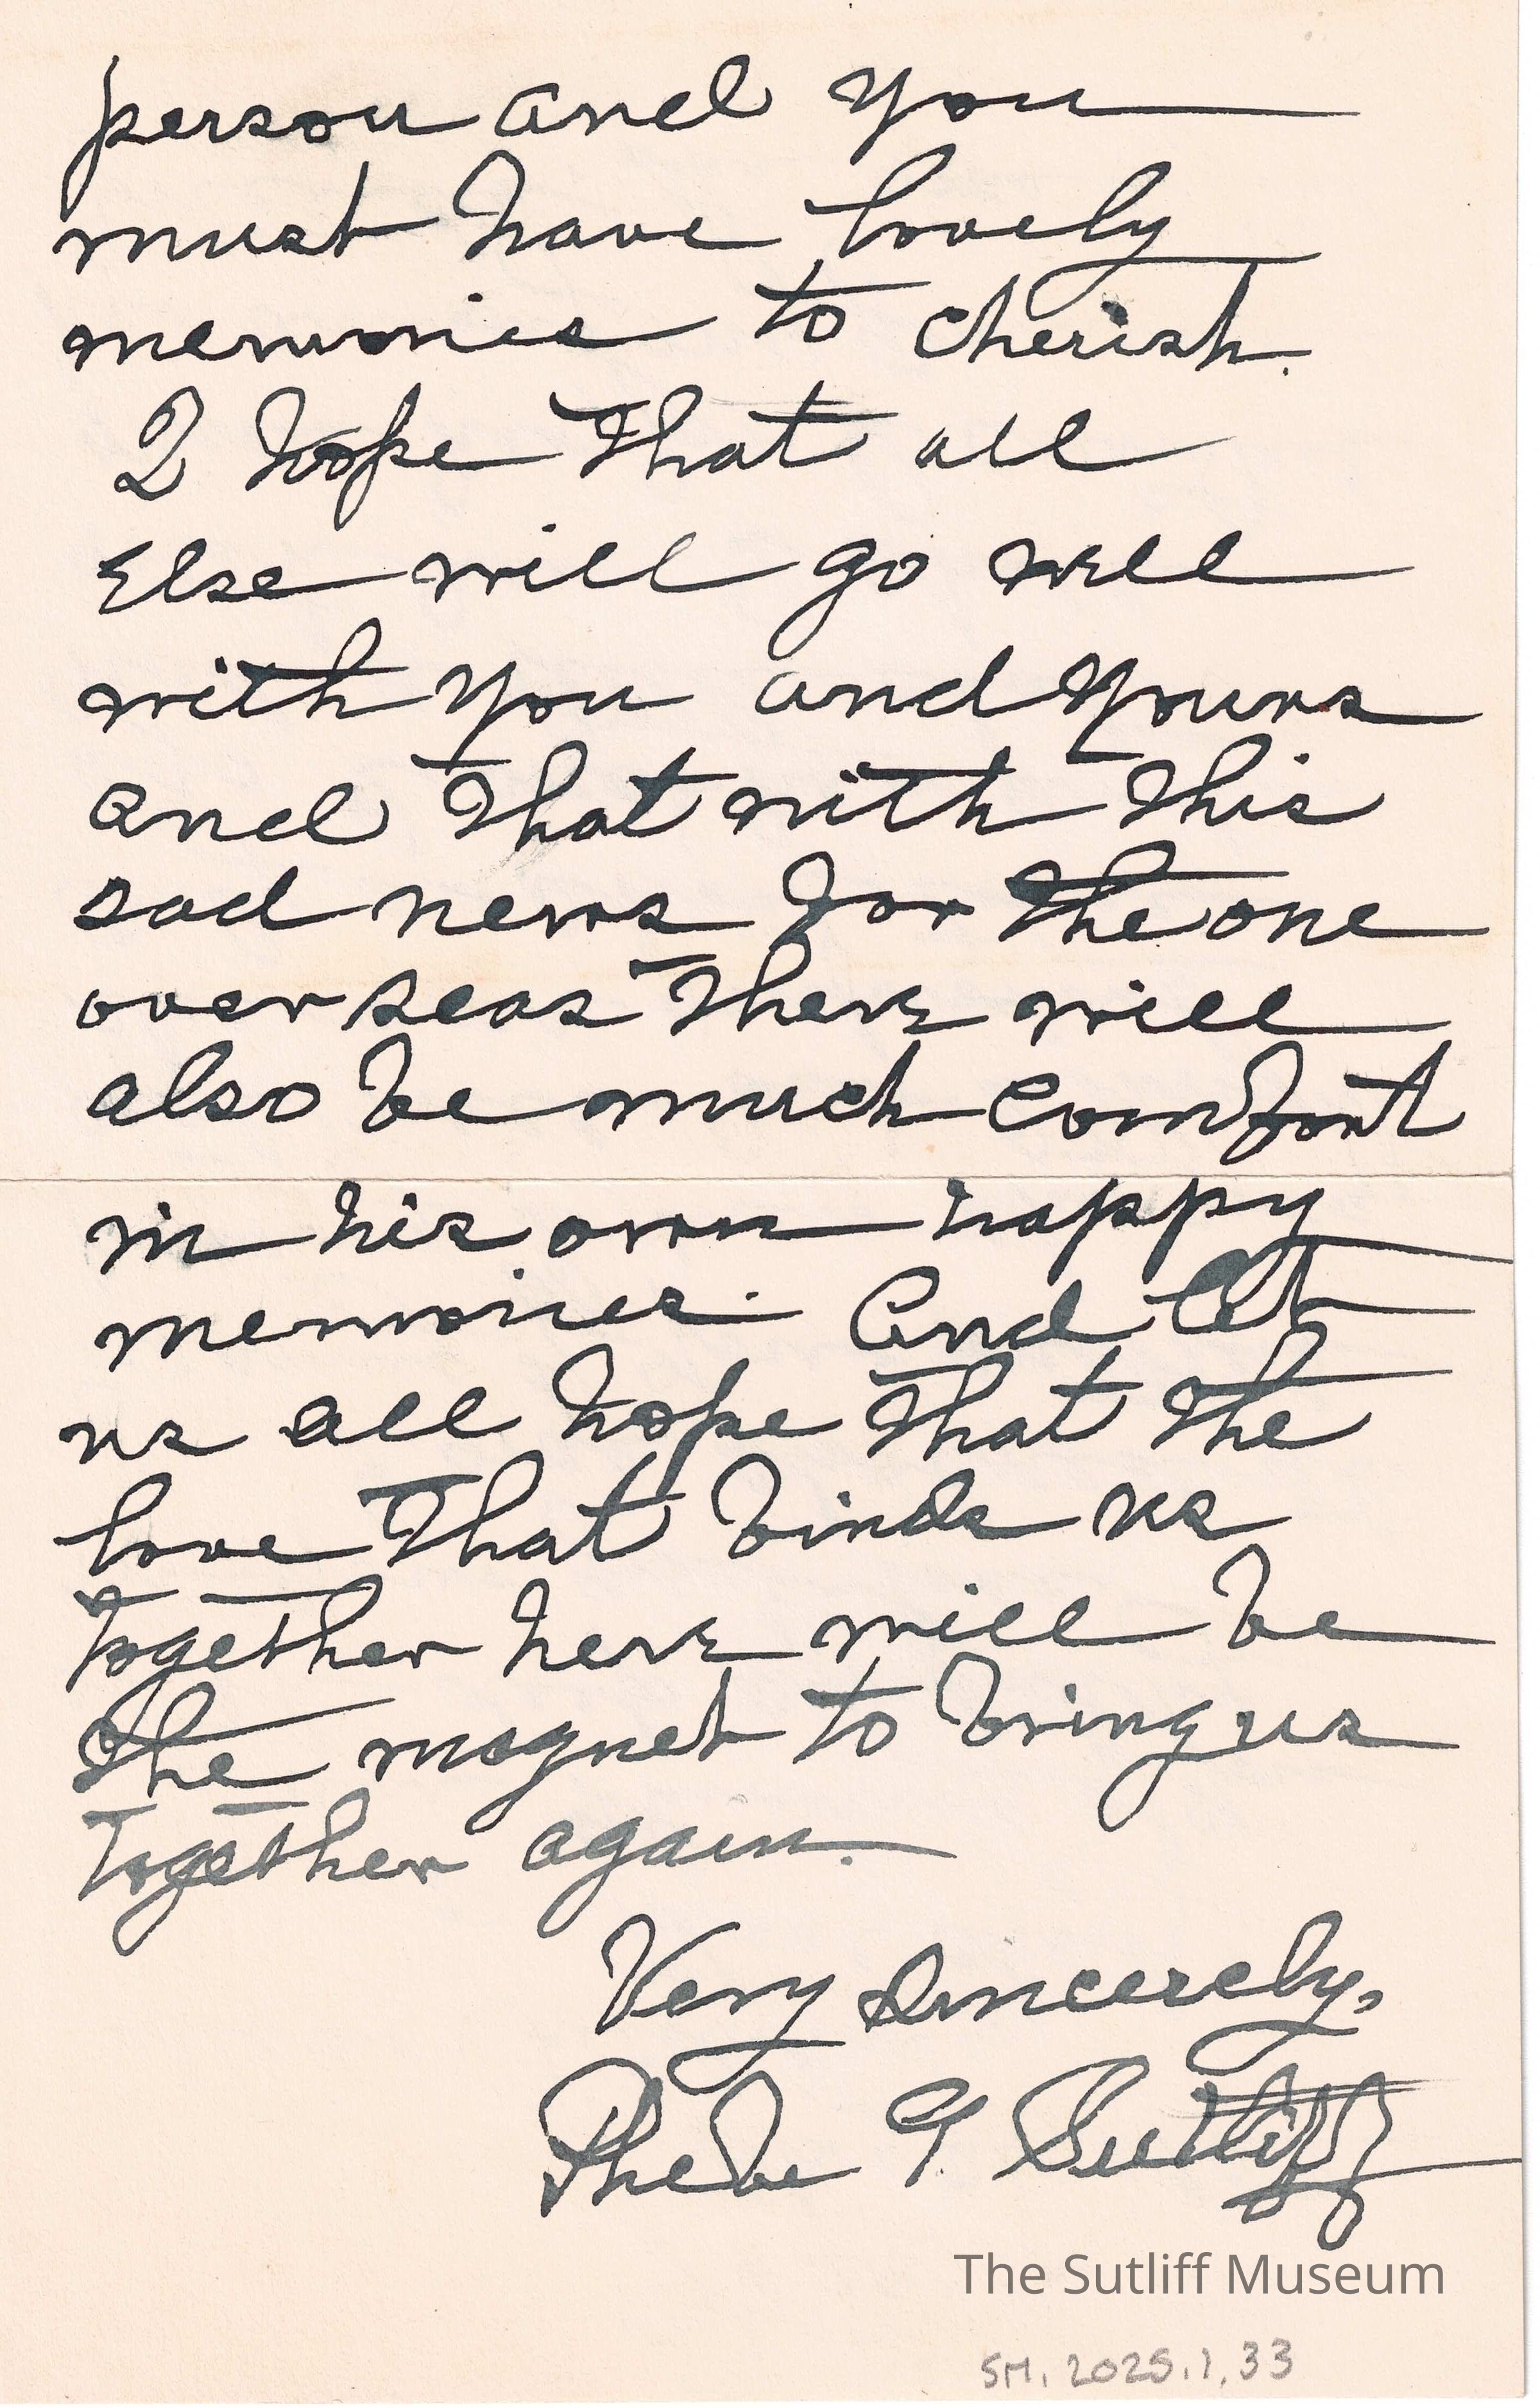 person and you
must have lovely
memories to cherish.
I hope that all
Else will go well
with you and yours
and that with this
sad news for the one
over seas there will
also be much comfort
in his own happy
memories. And let
us all hope that the
love that binds us
together here will be
the magnet to bring us
together again.
Very sincerely,
Phebe T Sutliff
The Sutliff Museum
SM. 2025.1.33